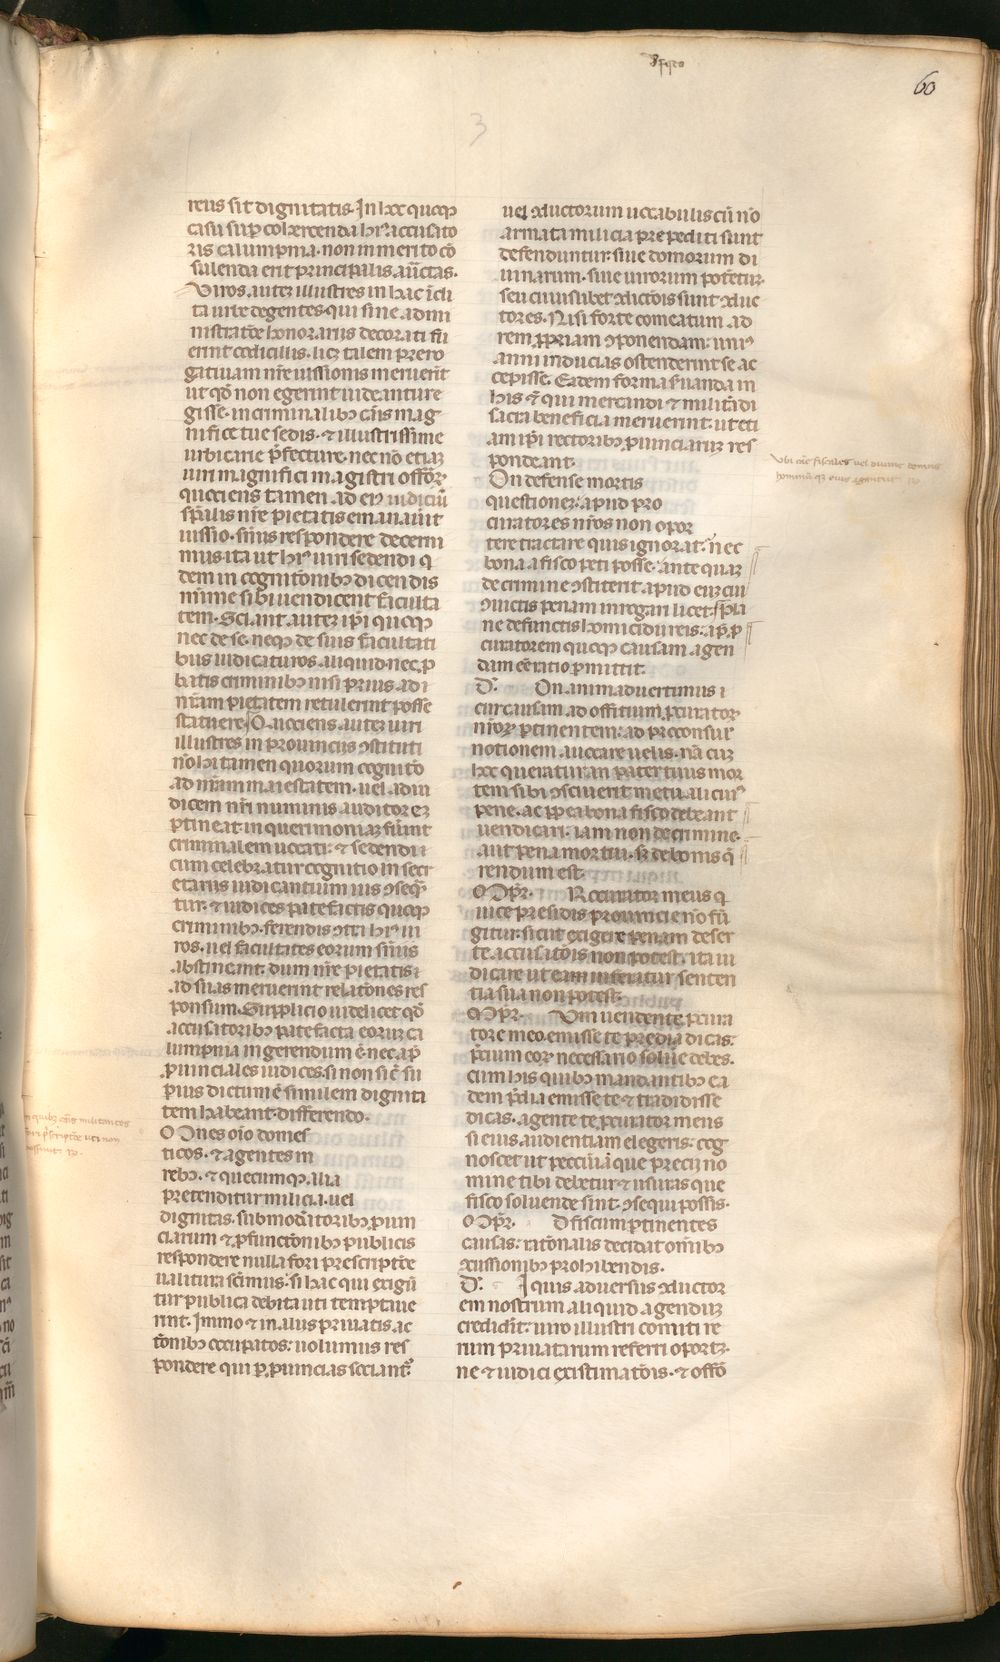 60
3
reus sit dignitatis. In hoc quoqꝫ
casu suꝑ cohercenda hiꝰ accusato
ris calumpnia. non inmerito cō
sulenda erit principalis auc̄tas.
Viros autez illustres in hac icli
ta urbe degentes. qui sine admi
nistratōe honorariis decorati fu
erint codicillis. licꝫ talem prero
gatiuam nr̄e iussionis meruerīt
ut qd̄ non egerint uideantur e
gisse. in criminalibꝫ cāis mag
nifice tue sedis. ⁊ illustrissime
urbicarie p̄fecture. nec nō etiaꝫ
uiri magnifici magistri offōꝝ
quociens tamen ad eꝰ iudiciū
sp̄alis nr̄e pietatis emanau̇it
iussio. sn̄iis respondere decerni
mus ita ut hiꝰ uiri sedendi q
dem in cognitōnibꝫ dicendis
nim̄e sibi uendicent faculta
tem. Sciant autez ip̄i quoqꝫ
nec de se. neqꝫ de suis facultati
bus iudicaturos aliquid. nec ꝓ
batis criminibꝫ nisi prius ad i
nr̄am pietatem retulerint posse
statuere. Quociens autez uiri
illustres in prouinciis ꝯstituti
nō hi tamen quorum cognitō
ad nr̄am maiestatem. uel ad iu
dicem nr̄i numinis auditorez
ꝑtineat. in querimoniaꝫ fu̇int
criminalem uocati: ⁊ sedendi i
cum celebratur cognitio in secr
etariis iudicantium ius ꝯseq̄
tur. ⁊ iudices patefactis quoqꝫ
criminibꝫ. ferendis ꝯtra hiꝰ ui
ros. uel facultates eorum sn̄iis
abstineant. dum nr̄e pietatis i
ad suas meruerint relatōnes res
ponsum. Supplicio uidelicet qd̄
accusatoribꝫ patefacta eoruꝫ ca
lumpnia ingerendum ē. nec ap̄
ꝓuinciales iudices. si non sic̄ su
ꝑius dictum ē similem dignita
tem habeant. differendo.
OMnes oīo domes
ticos. ⁊ agentes in
rebꝫ. ⁊ quecumqꝫ alia
pretenditur milicia. uel
dignitas. sub moderatoribꝫ ꝓuin
ciarum ⁊ ꝓ functōnibꝫ publicis
respondere nulla fori prescriptōe
ualitura scimus. si hac qui exigū
tur publica debita uti temptaue
rint. Immo ⁊ in aliis priuatis ac
tōnibꝫ occupatos: uolumus res
pondere qui ꝑ ꝓuincias sociantʳ
uel ductorum uocabulis cū nō
armata milicia prepediti sunt
defenduntur: siue domorum di
uinarum. siue uirorum potētuꝫ.
seu cuiuslibet ꝯdictōis sunt ꝯduc
tores. Nisi forte comeatum ad
rem ꝓpriam ꝯponendam: uniꝰ
anni inducias ostenderint se ac
cepisse. Eadem forma s̄uanda in
his ⁊ qui mercandi ⁊ militādi
sacra beneficia meruerint. ut eti
am ip̄i rectoribꝫ ꝓuinciaruꝫ res
pondeant.
On defense mortis
questionez: apud pro
curatores nr̄os non opor
tere tractare quis ignorat: nec
bona a fisco peti posse: ante quaꝫ
de crimine ꝯstiterit. apud euꝫ cui
ꝯuictis penam inrogari licet: sp̄la
ne defunctis homicidii reis: ap̄ ꝓ
curatorem quoqꝫ causam agen
dam eē ratio ꝑmittit.
D. On animaduertimus i
cur causam ad offitium ꝓcuratoꝝ
nr̄oꝝ ꝑtinentem: ad proconsuꝉ
notionem auocare uelis. nā cuꝫ
hoc queratur an pater tuus mor
tem sibi ꝯsciuerit metu alicuiꝰ
pene. ac ꝓpea bona fisco debeant
uendicari: iam non de crimine.
aut pena mortui. sꝫ de bonis q̄
rendum est.
OMpr. Rocurator meus q
uice presidis prouincie nō fū
gitur. sicut exigere penam deser
te accusatōis non potest: ita iu
dicare ut eam inferatur senten
tia sua non potest.
OMpr. Vm uendente ꝓcura
tore meo emisse te predia dicas:
p̄cium eoꝝ necessario solūe debes.
cum his quibꝫ mandantibꝫ ea
dem p̄dia emisse te ⁊ tradidisse
dicas. agente te ꝓcurator meus
si eius audientiam elegeris: cog
noscet ut peccūia que precii no
mine tibi debetur ⁊ usuras que
fisco soluende sint. ꝯsequi possis.
OMpr. D fiscum ꝑtinentes
causas: ratōnalis decidat omībꝫ
ꝯcussionibꝫ prohibendis.
D. I quis aduersus ꝯductor
em nostrum aliquid agenduꝫ
credidit: uiro illustri comiti re
rum priuatarum referri oportꝫ.
ne ⁊ iudici existimatōis. ⁊ offō
Vbi cāe fiscales uel diuine domus
hominūqꝫ eius agentur. R̄o